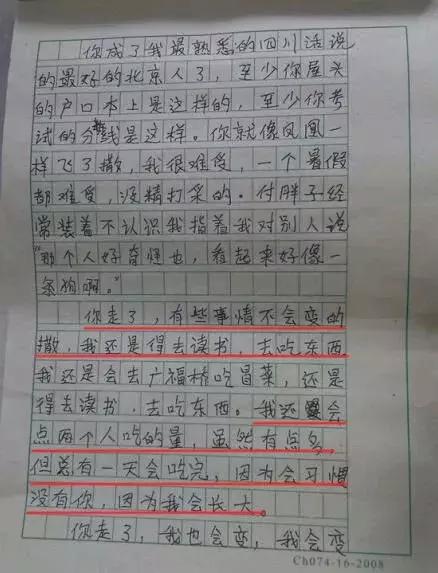 你成了我最熟悉的四川话说
的最好的北京人了，至少你屋头
的户口本上是这样的，至少你考
试的分数线是这样。你就像凤凰一
样飞了撒，我很难受，一个暑假
都难受，没精打采的。付胖子经
常装着不认识我指着我对别人说
“那个人好奇怪也，看起来好像一
条狗啊。”
你走了，有些事情不会变的
撒，我还是得去读书，去吃东西
我还是会去广福桥吃冒菜，还是
得去读书，去吃东西。我还会
点两个人吃的量，虽然有点多，
但总有一天会吃完，因为会习惯
没有你，因为我会长大。
你走了，我也会变，我会变
Ch074-16-2008